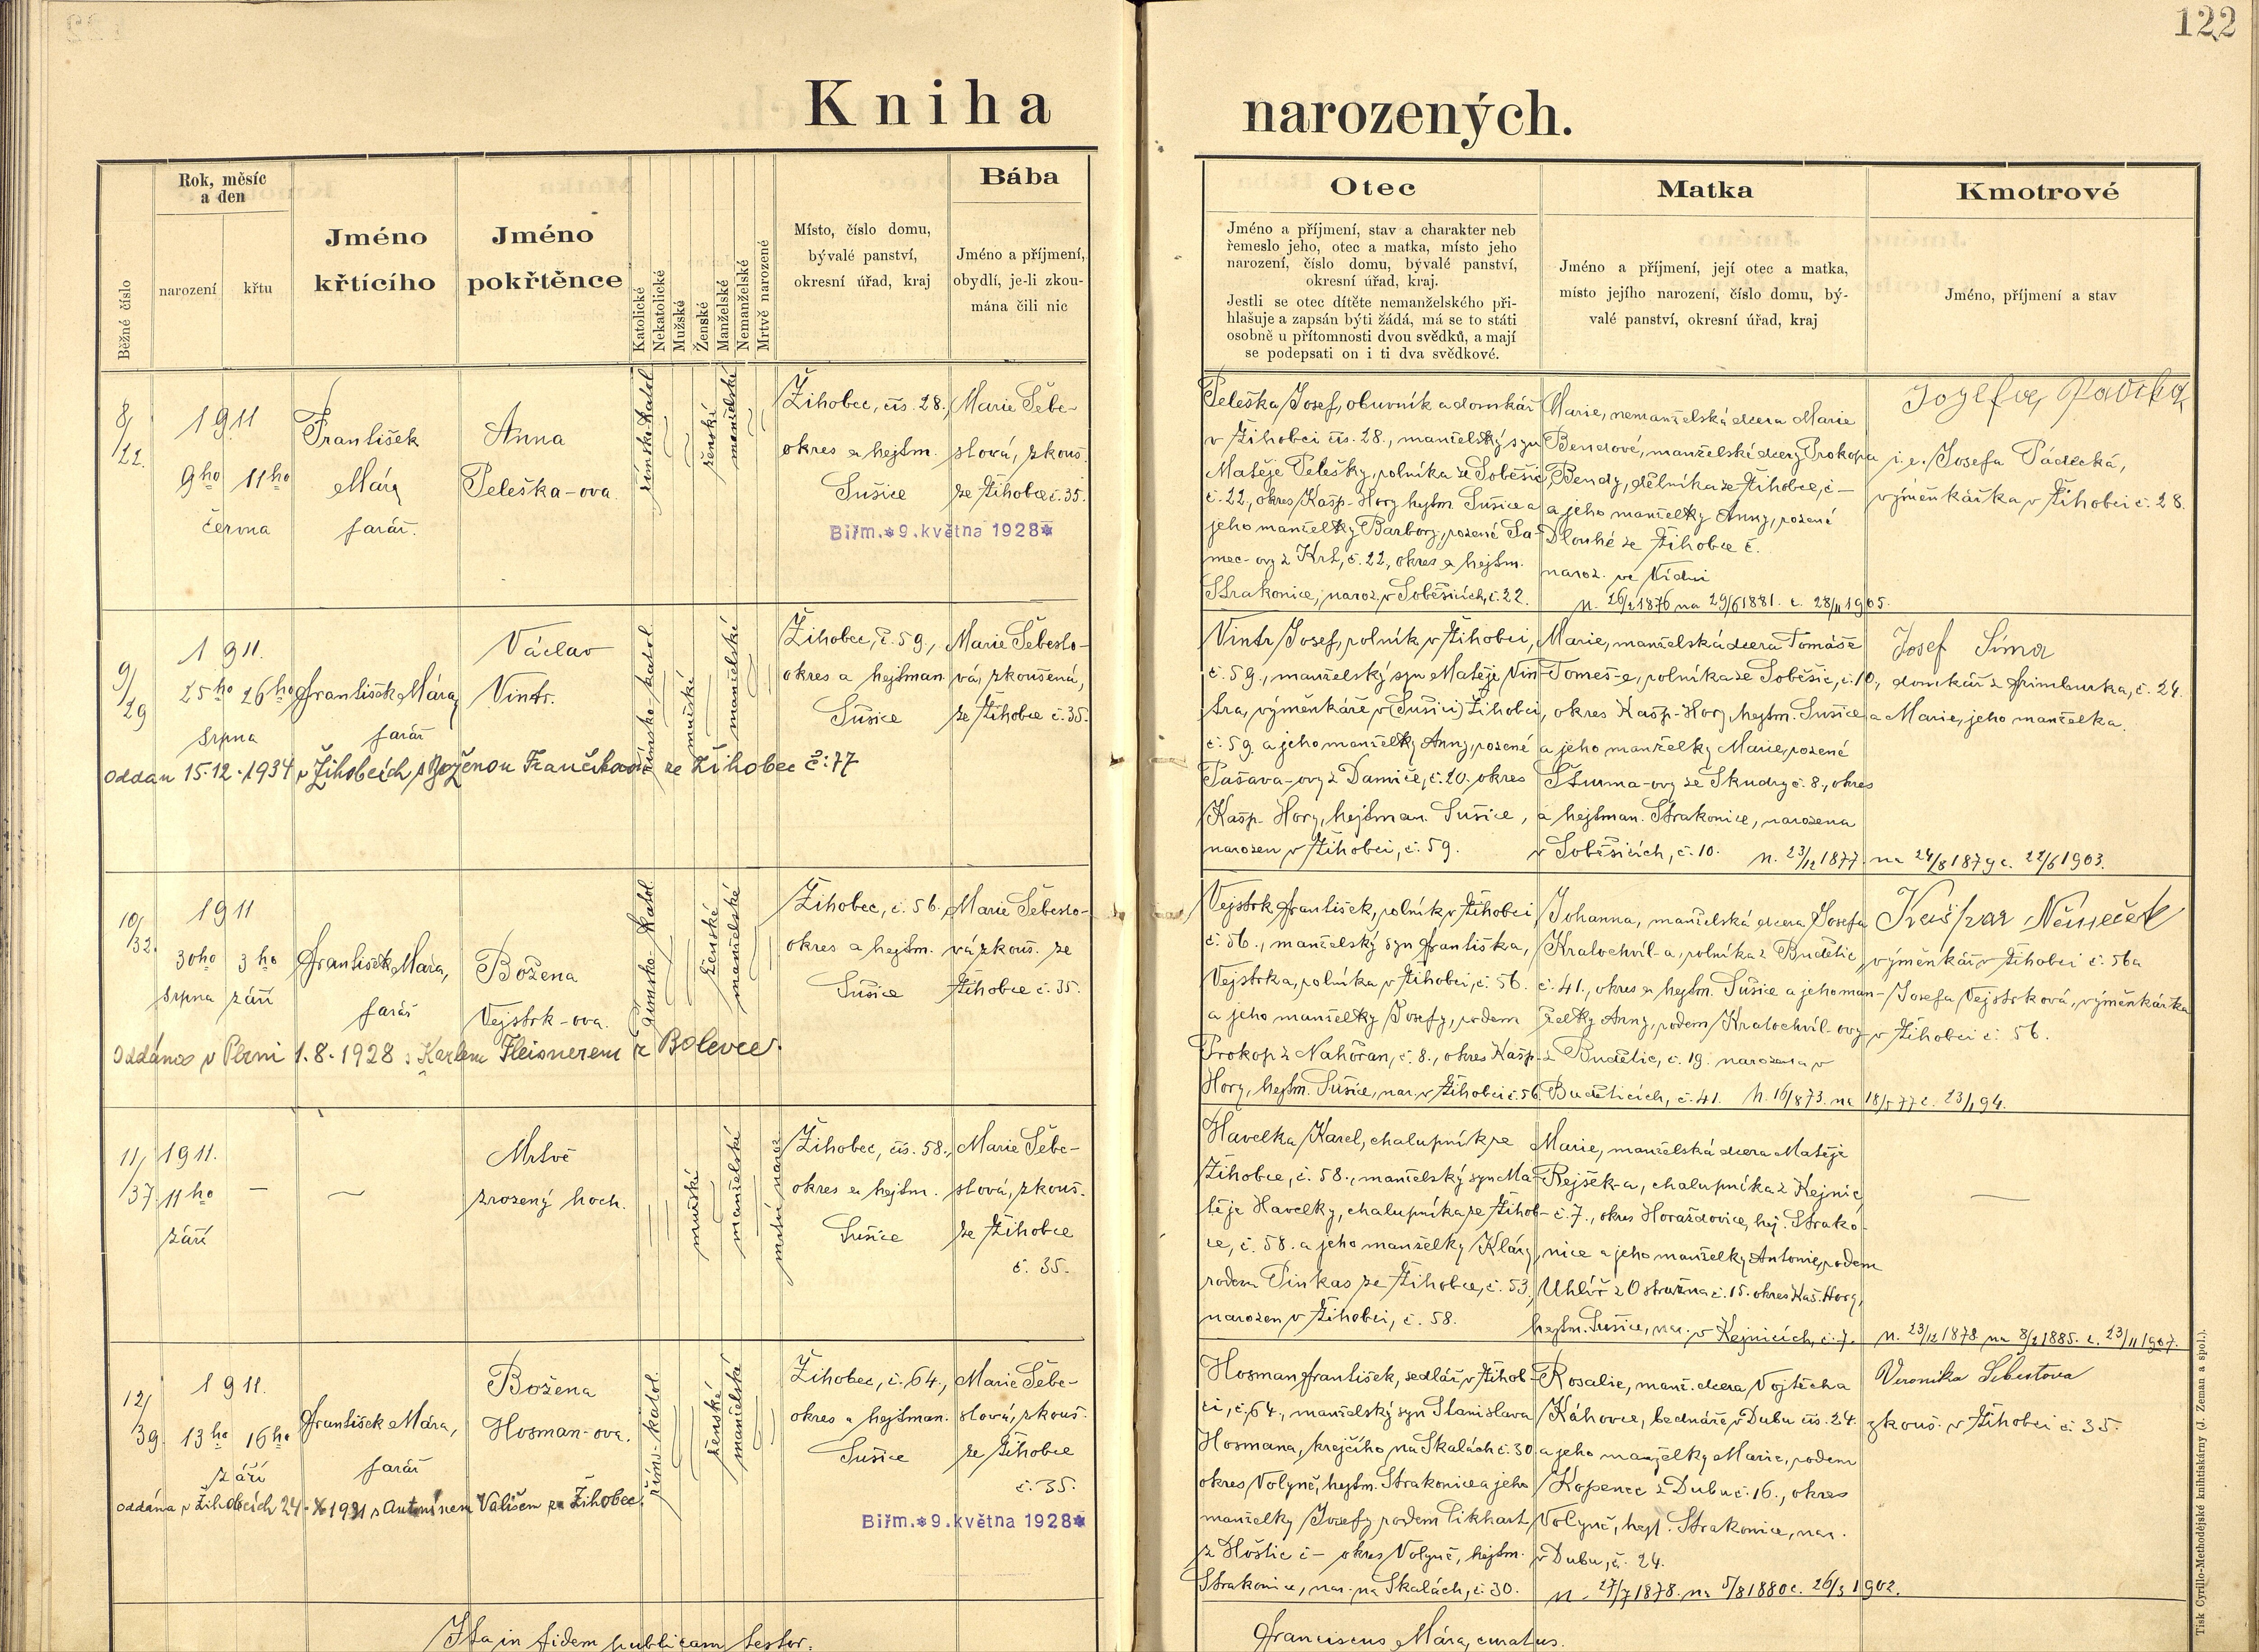 122
Kniha narozených.
Běžné číslo
Rok, měsíc
a den
narození
křtu
Jméno
křtícího
Jméno
pokřtěnce
Katolické
Nekatolické
Mužské
Ženské
Manželské
Nemanželské
Mrtvě narozené
Místo, číslo domu,
bývalé panství,
okresní úřad, kraj
Bába
Jméno a příjmení,
obydlí, je-li zkou-
mána čili nic
Otec
Jméno a příjmení, stav a charakter neb
řemeslo jeho, otec a matka, místo jeho
narození, číslo domu, bývalé panství,
okresní úřad, kraj.
Jestli se otec dítěte nemanželského při-
hlašuje a zapsán býti žádá, má se to státi
osobně u přítomnosti dvou svědků, a mají
se podepsati on i ti dva svědkové.
Matka
Jméno a příjmení, její otec a matka,
místo jejího narození, číslo domu, bý-
valé panství, okresní úřad, kraj
Kmotrové
Jméno, příjmení a stav
8/
/22.
1911
9ho 11ho
června
František
Mára
farář.
Anna
Peleška-ova.
římsko-katol.
ženské
manželské
Žihobec, čís. 28.,
okres a hejtm.
Sušice
Marie Šebe-
stová, zkouš.
ze Žihobce č. 35.
Biřm.*9.května 1928*
Peleška Josef, obuvník a domkář
v Žihobci čís. 28., manželský syn
Matěje Pelešky, rolníka ze Soběšic
č. 22, okres Kašp. Hory hejtm. Sušice a
jeho manželky Barbory, rozené Sa-
mec-ovy z Krt, č. 22, okres a hejtm.
Strakonice, naroz. v Soběšicích, č. 22.
Marie, nemanželská dcera Marie
Bendové, manželské dcery Prokopa
Bendy, dělníka ze Žihobce, č –
a jeho manželky Anny, rozené
Dlouhé ze Žihobce č.
naroz. ve Vídni
n. 26/2 1876 na 29/6 1881. c. 28/11 1905.
i. e. Josefa Pádecká,
výměnkářka v Žihobci č. 28.
9/
/29
1911.
25ho 26ho
srpna
František Mára,
farář
Václav
Vintr.
římsko-katol.
mužské
manželské
Žihobec, č. 59.,
okres a hejtman.
Sušice
Marie Šebesto-
vá, zkoušená,
ze Žihobce č. 35.
oddán 15.12.1934 v Žihobcích s Boženou Frančíkovou ze Žihobec č: 77
Vintr Josef, rolník v Žihobci,
č. 59., manželský syn Matěje Vin-
tra, výměnkáře v (Sušici) Žihobci,
č. 59. a jeho manželky Anny, rozené
Pašava-ovy z Damíče, č. 20. okres
Kašp. Hory, hejtman. Sušice,
narozen v Žihobci, č. 59.
Marie, manželská dcera Tomáše
Tomeš-e, rolníka ze Soběšic, č. 10,
okres Kašp. Hory, hejtm. Sušice
a jeho manželky Marie, rozené
Šturma-ovy ze Škudry č. 8., okres
a hejtman. Strakonice, narozena
v Soběšicích, č. 10. n. 23/12 1877. na 24/8 1879 c. 22/6 1903.
Josef Šíma
domkář z Frimburka, č. 24.
a Marie, jeho manželka.
10/
/32.
1911
30ho 3ho
srpna září
František Mára,
farář
Božena
Vejstrk-ova.
římsko-katol.
ženské
manželské
Žihobec, č. 56.,
okres a hejtm.
Sušice
Marie Šebesto-
vá zkouš. ze
Žihobce č. 35.
Oddána v Plzni 1.8.1928 s Karlem Fleisnerem z Bolevce.
Vejstrk František, rolník v Žihobci
č. 56., manželský syn Františka,
Vejstrka, rolníka v Žihobci, č. 56.
a jeho manželky Josefy, rodem
Prokop z Nahořan, č. 8., okres Kašp.
Hory, hejtm. Sušice, nar. v Žihobci č. 56.
Johanna, manželská dcera Josefa
Kratochvíl-a, rolníka z Budětic,
č. 41., okres a hejtm. Sušice a jeho man-
želky Anny, rodem Kratochvíl-ovy
z Budětic, č. 19. narozena v
Budětících, č. 41. n. 16/8 73. na 18/5 77 c. 23/1 94.
Kašpar Němeček
výměnkář v Žihobci č. 56a
Josefa Vejstrková, výměnkářka
v Žihobci č. 56.
11/
/37
1911.
11ho –
září
Mrtvě
zrozený hoch.
mužské
manželské
mrtvě naroz.
Žihobec, čís. 58.,
okres a hejtm.
Sušice
Marie Šebe-
stová, zkouš.
ze Žihobce
č. 35.
Havelka Karel, chalupník ze
Žihobce, č. 58., manželský syn Ma-
těje Havelky, chalupníka ze Žihob-
ce, č. 58. a jeho manželky Kláry,
rodem Pinkas ze Žihobce, č. 53,
narozen v Žihobci, č. 58.
Marie, manželská dcera Matěje
Rejšek-a, chalupníka z Kejnic
č. 7., okres Horažďovice, hej. Strako-
nice a jeho manželky Antonie, rodem
Uhlíř z Ostružna č. 15. okres Kaš. Hory,
hejtm. Sušice, nar. v Kejnicích, č. 7. n. 23/12 1878 na 8/2 1885. c. 23/11 1907.
12/
/39.
1911.
13ho 16ho
září
František Mára,
farář
Božena
Hosman-ova.
řím.-katol.
ženské
manželské
Žihobec, č. 64.,
okres a hejtman.
Sušice
Marie Šebe-
stová, zkouš.
ze Žihobce
č. 35.
oddána v Žihobcích 24.X 1931 s Antonínem Vališem ze Žihobec.
Biřm.*9.května 1928*
Hosman František, sedlář v Žihob-
ci, č. 64., manželský syn Stanislava
Hosmana, krejčího na Skalách č. 30
okres Volyně, hejtm. Strakonice a jeho
manželky Josefy rodem Likhart
z Hoštic č – okres Volyně, hejtm.
Strakonice, nar. na Skalách, č. 30.
Rosalie, manž. dcera Vojtěcha
Káhovce, bednáře v Dubu čís. 24.
a jeho manželky Marie, rodem
Kopenec z Dubu č. 16., okres
Volyně, hejt. Strakonice, nar.
v Dubu, č. 24.
n. 27/7 1878. na 5/8 1880 c. 26/3 1902.
Veronika Šebestova
zkouš. v Žihobci č. 35.
Ita in fidem publicam testor:
Franciscus Mára, curatus.
Tisk Cyrillo-Methodějské knihtiskárny (J. Zeman a spol.).